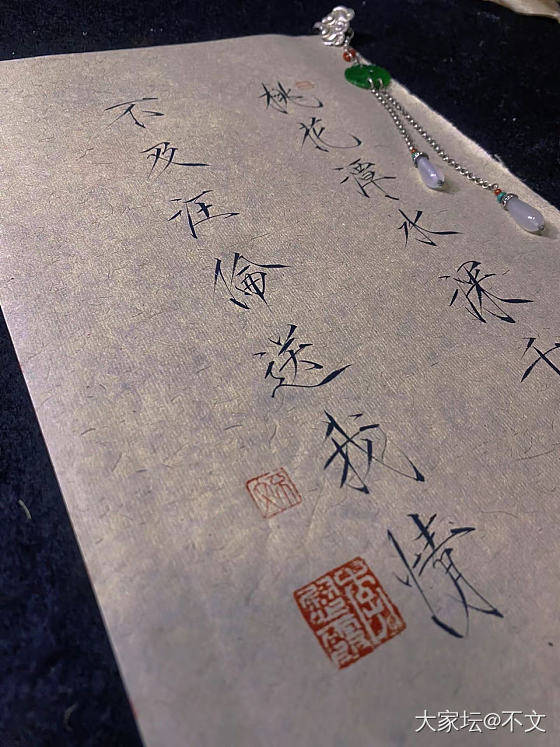 桃花潭水深千
不及汪倫送我情
大家坛@不文